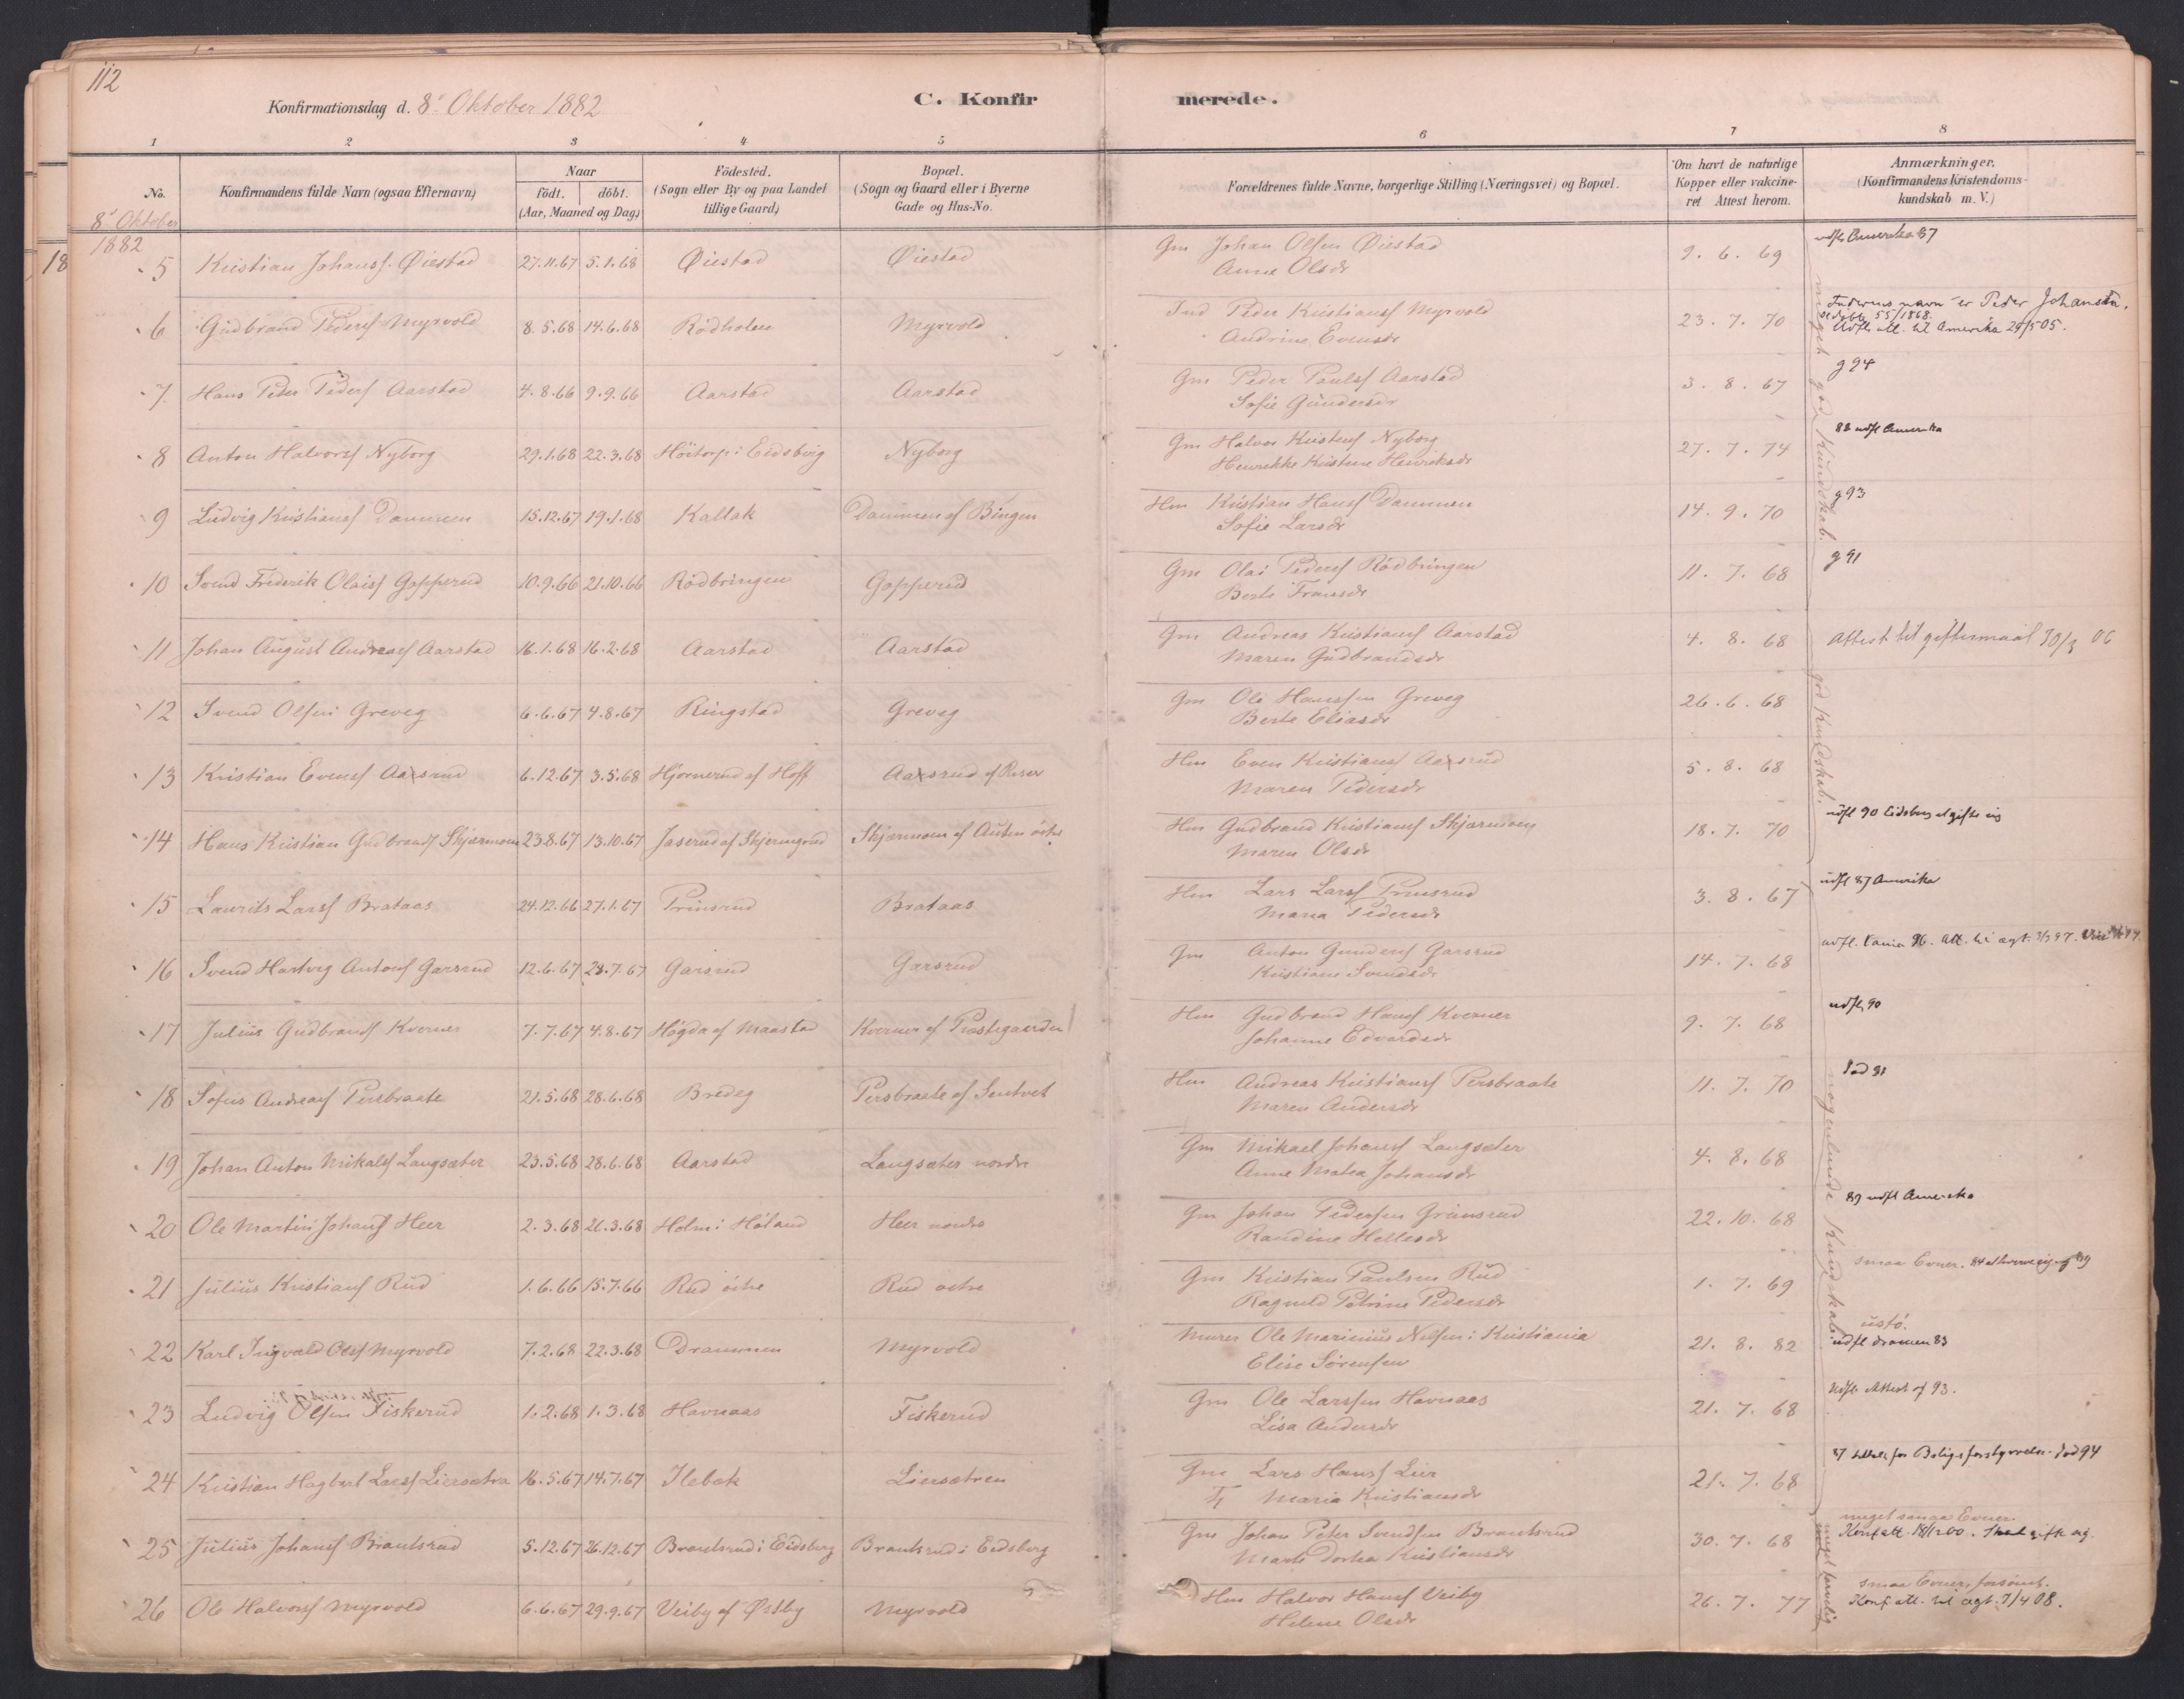 112
Konfirmationsdag d. 8' Oktober 1882
C. Konfirmerede.
1 2 3 4 5 6 7 8
No.
Konfirmandens fulde Navn (ogsaa Efternavn)
Naar
födt. döbt.
(Aar, Maaned og Dag)
Födestéd.
(Sogn eller By og paa Landet
tillige Gaard)
Bopæl.
(Sogn og Gaard eller i Byerne
Gade og Hus-No.
Forældrenes fulde Navne, borgerlige Stilling (Næringsvei) og Bopæl.
Om havt de naturlige
Kopper eller vakcine-
ret Attest herom.
Anmærkninger.
(Konfirmandens Kristendoms-
kundskab m. V.)
8' Oktober
1882
18
5 Kristian Johansf. Øiestad 27.11.67 5.1.68 Øiestad Øiestad Gm Johan Olsen Øiestad 9. 6. 69 udfl. Amerika 87
Anne Olsdr
meget god Kundskab.
6 Gudbrand Pedersf Myrvold 8.5.68 14.6.68 Rödholen Myrvold Ind Peder Kristiansf Myrvold 23. 7. 70 Faderens navn er Peder Johansen.
Andrine Evensdr
55/1868.
Udfl. att. til Amerika 29/5 05.
7 Hans Peder Pedersf Aarstad 4.8.66 9.9.66 Aarstad Aarstad Gm Peder Paulsf Aarstad 3. 8. 67 g 94
Sofie Gundersdr
8 Anton Halvorsf Nyborg 29.1.68 22.3.68 Höitorp i Eidsberg Nyborg Gm Halvor Kristensf Nyborg 27. 7. 74 88 udfl Amerika
Henrikke Kristine Henriksdr
9 Ludvig Kristiansf Dammen 15.12.67 19.1.68 Kallak Dammen af Bingen Hm Kristian Hansf Dammen 14. 9. 70 g 93
Sofie Larsdr
10 Svend Frederik Olaisf Gopperud 10.9.66 21.10.66 Rödbringen Gopperud Gm Olai Pedersf Rödbringen 11. 7. 68 g 91
Berte
11 Johan August Andreasf Aarstad 16.1.68 16.2.68 Aarstad Aarstad Gm Andreas Kristiansf Aarstad 4. 8. 68 Attest til giftermaal 30/3 06
Maren Gudbrandsdr
god Kundskab.
12 Svend Olsen Greveg 6.6.67 4.8.67 Ringstad Greveg Gm Ole Hanssen Greveg 26. 6. 68
Berte Eliasdr
13 Kristian Evensf Aaserud 6.12.67 3.5.68 Hjornerud af Hoff Gm Even Kristiansf 5. 8. 68
Maren Pedersdr
14 Hans Kristian Gudbrandsf Skjærmoen 23.8.67 13.10.67 Jaserud af Skjerengrud Skjærmoen af Auten östre Hm Gudbrand Kristiansf Skjærmoen 18. 7. 70 udfl 90 Eidsberg
Maren Olsdr
15 Laurits Larsf Brataas 24.12.66 27.1.67 Prinsrud Brataas Hm Lars Larsf Prinsrud 3. 8. 67 udfl 87 Amerika
Maria Pedersdr
16 Svend Hartvig Antonf Garsrud 12.6.67 28.7.67 Garsrud Garsrud Gm Anton Gundersf Garsrud 14. 7. 68
Kristiane Svendsdr
17 Julius Gudbrandsf Kverner 7.7.67 4.8.67 Högda af Maastad Kverner af Præstegaarden Hm Gudbrand Hansf Kverner 9. 7. 68 udfl 90
Johanne Edvardsdr
18 Sofus Andreasf Persbraate 21.5.68 28.6.68 Bredeg Persbraate af Sentvet Hm Andreas Kristiansf Persbraate 11. 7. 70
Maren Andersdr
nogenlunde Kundskab.
19 Johan Anton Mikalsf Langsæter 23.5.68 28.6.68 Aarstad Langsæter nordre Gm Mikael Johansf Langsæter 4. 8. 68
Anne Matea Johansdr
20 Ole Martin Johansf Heer 2.3.68 26.3.68 Holm i Höland Heer nordre Gm Johan Pedersen Grimsrud 22. 10. 68 87 udfl Amerika
Randine Hellesdr
21 Julius Kristiansf Rud 1.6.66 15.7.66 Rud östre Rud östre Gm Kristian Paulsen Rud 1. 7. 69 smaa Evner.
Ragnild Petrine Pedersdr
22 Karl Ingvald Olsf Myrvold 7.2.68 22.3.68 Drammen Myrvold Murer Ole Marinius Nilsen i Kristiania 21. 8. 82 ustö.
Elise Sörensen
udfl dramen 83
23 Ludvig Olsen Fiskerud 1.2.68 1.3.68 Havnaas Fiskerud Gm Ole Larssen Havnaas 21. 7. 68 Udfl. Attest af 93.
Lisa Andersdr
24 Kristian Hagbart Larsf Liersætra 16.5.67 14.7.67 Ilebæk Liersætren Gm Lars Hansf Lier 21. 7. 68
Maria Kristiansdr
25 Julius Johansf Brantsrud 5.12.67 26.12.67 Brantsrud i Eidsberg Brantsrud i Eidsberg Gm Johan Peter Svendsen Brantsrud 30. 7. 68 meget smaa Evner.
Marte Dortea Kristiansdr
Konf.att. 18/12 00.
26 Ole Halvorsf Myrvold 6.6.67 29.9.67 Veiby af Østby Myrvold Hm Halvor Hansf Veiby 26. 7. 77 smaa Evner, forsömt.
Helene Olsdr
Konf.att. til ægt. 7/4 08.